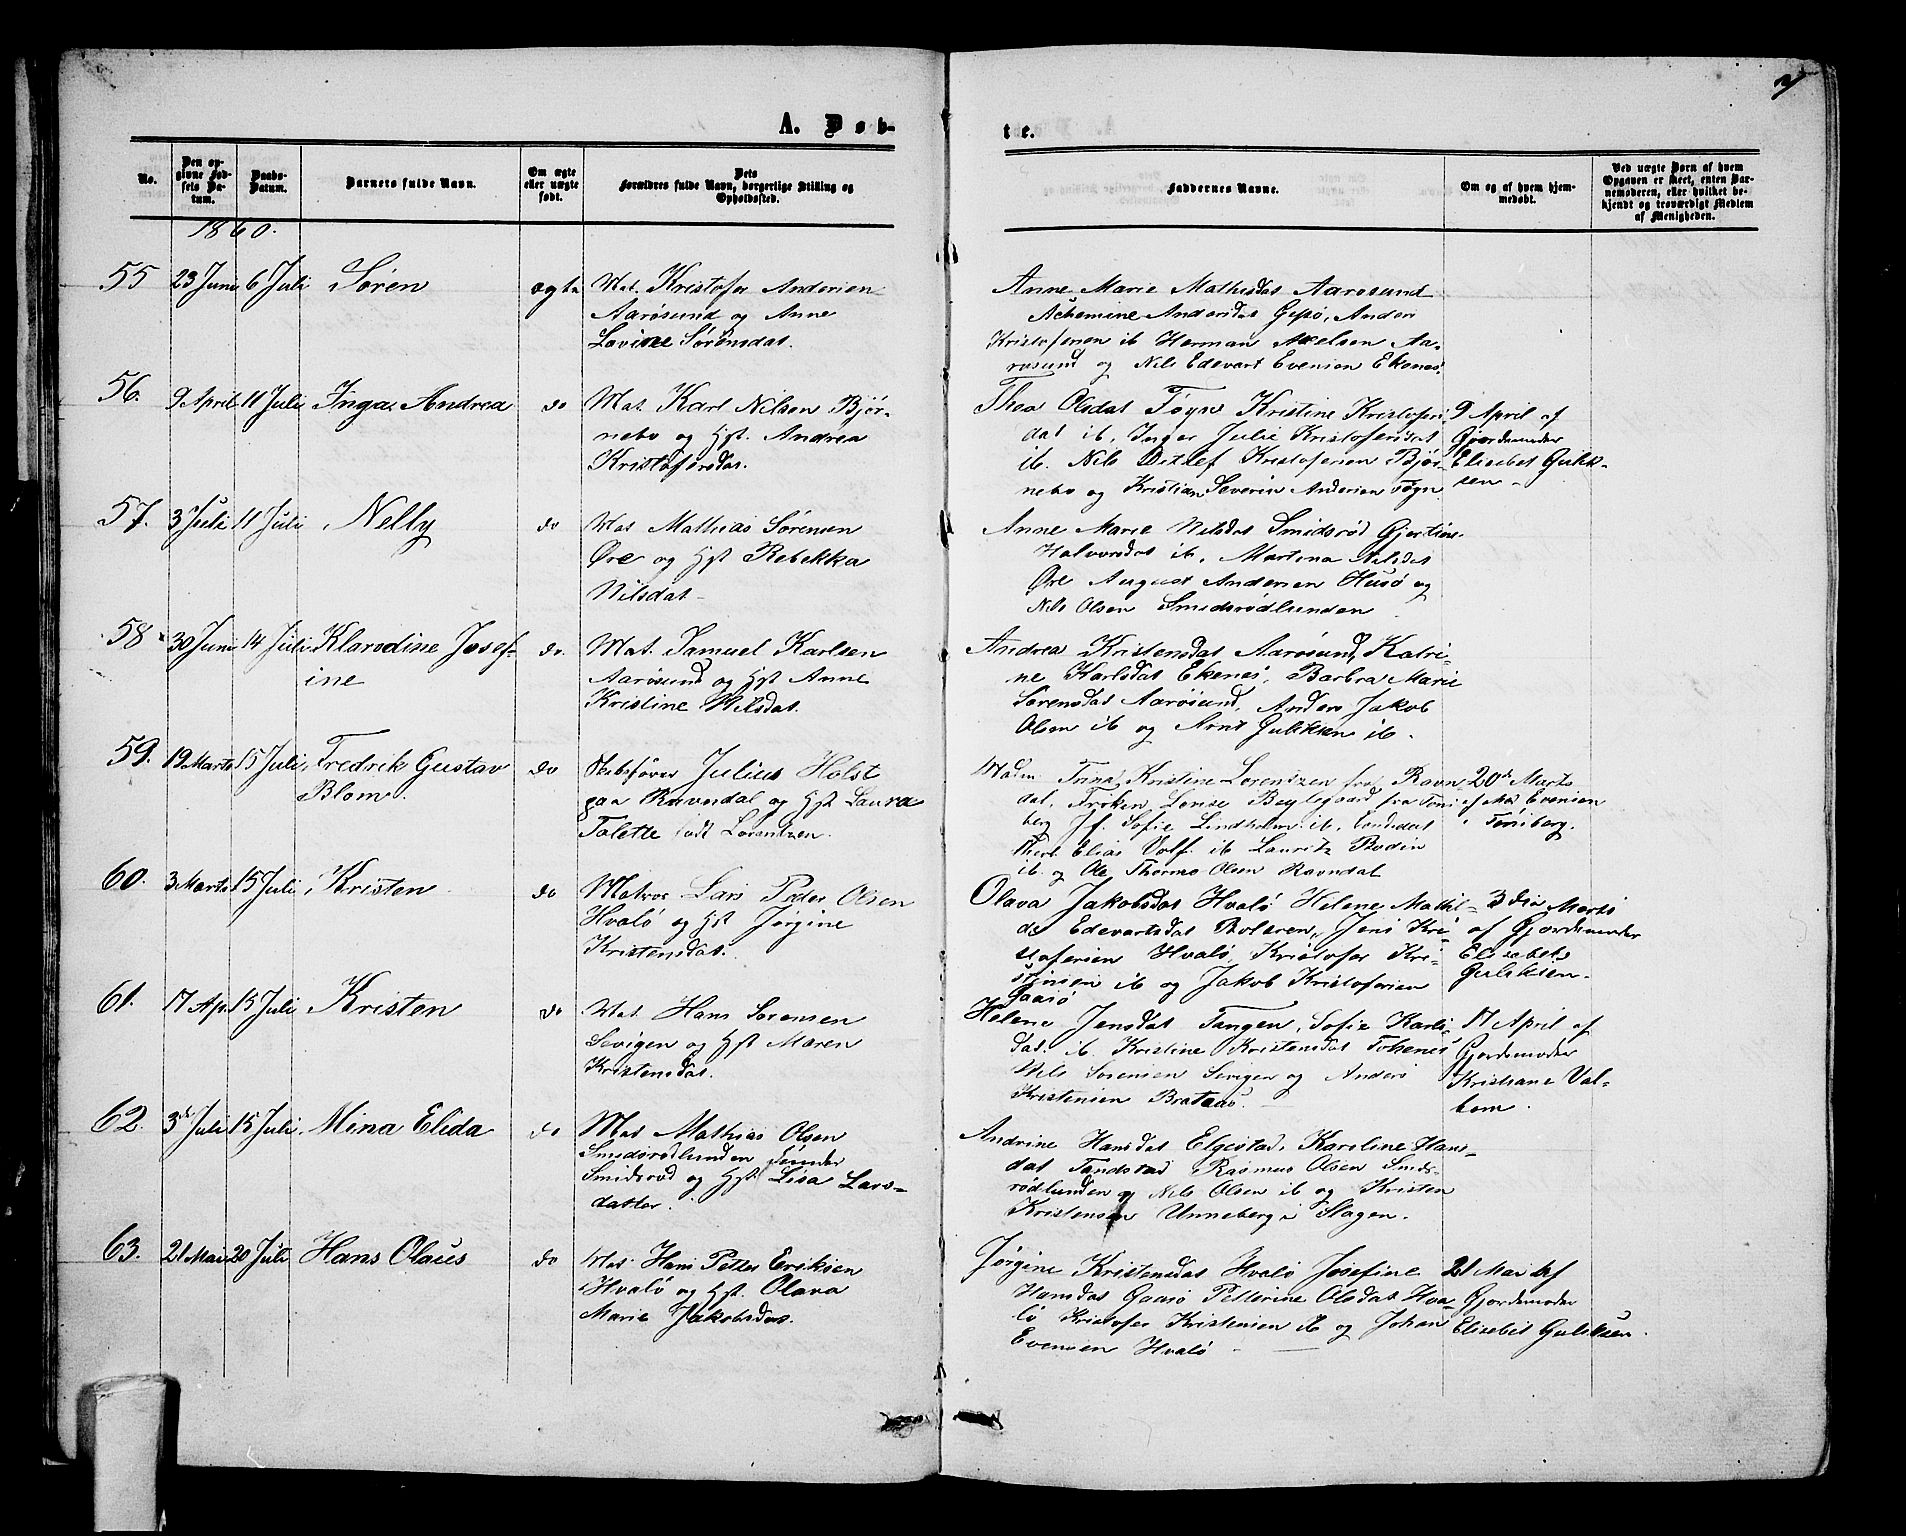 A. Døb-
te.
No.
Den op-
givne Fød-
sels Da-
tum.
Daabs-
Datum.
Barnets fulde Navn.
Om ægte
eller uægte
født.
Dets
Forældres fulde Navn, borgerlige Stilling og
Opholdssted.
Faddernes Navne.
Om og af hvem hjem-
medøbt.
Ved uægte Børn af hvem
Opgaven er skeet, enten Bar-
nemoderen, eller hvilket be-
kjendt og troværdigt Medlem
af Menigheden.
1860.
55 23 Juni 6 Juli Søren ægte Mat. Kristofer Andersen
Aarøsund og Anne
Lovise Sørensdat.
Anne Marie Mathisdat Aarøsund
Andersdat Gipø, Anders
Kristofersen ib Herman Axelsen Aa-
røsund og Nils Edevart Evensen Ekenes.
56. 9 April 11 Juli Inga Andrea do Mat. Karl Nilsen Bjør-
nebo og Hst. Andrea
Kristofersdat.
Thea Olsdat Føgn Kristine Kristofers-
dat ib, Inger Julie Kristofersdat
ib. Nils Ditlef Kristofersen Bjør-
nebo og Kristian Severin Andersen Føgn
9 April af
Gjordemoder
Elisebet Gulik-
sen
57. 3 Juli 11 Juli Nelly do Mat Mathias Sørensen
Øre og Hst Rebekka
Nilsdat
Anne Marie Nilsdat Smidsrød Gjertine
Halvorsdat ib, Martena Nilsdat
Øre August Andersen Husø og
Nils Olsen Smidsrødlunden
58 30 Juni 14 Juli Klavdine Josef-
ine do. Mat. Samuel Karlsen
Aarøsund og Hst Anne
Kristine Nilsdat.
Andrea Kristensdat Aarøsund, Katri-
ne Karlsdat Ekenes, Barbra Marie
Sørensdat Aarøsund, Anders Jakob
Olsen ib og Arnt Guliksen ib.
59. 19 Marts 15 Juli Fredrik Gustav
Blom. do Skibsfører Julius Holst
paa Ravnsdal og Hst Laura
Talette født Lorentzen.
Madm Trina Kristine Lorentzen fra Ravn-
dal, Frøken Lovise Bøylegaard fra Tøns-
berg Jf. Sofie Lindholm ib. Kandidat
Elias Volf. ib Lauritz Bodin
ib. og Ole Thormo Olsen Ravndal
20de Marts
af Mad Evensen
Tønsberg.
60. 3 Marts 15 Juli Kristen do Matros Lars Peder Olsen
Hvalø og Hst Jørgine
Kristensdat.
Olava Jakobsdat Hvalø Helene Mathil-
de Edevartsdat Bolæren, Jens Kri-
stofersen Hvalø, Kristofer Kri-
stensen ib og Jakob Kristofersen
Gaasø
3die Marts
af Gjordemoder
Elisebet
Guliksen.
61. 17 Ap. 15 Juli Kristen do Mat. Hans Sørensen
Sevigen og Hst Maren
Kristensdat.
Helene Jensdat Tangen, Sofie Karls-
dat. ib. Kristine Kristensdat Torkenes
Nils Sørensen Sevigen og Anders
Kristensen Brataas.
17 April af
Gjordemoder
Kristiane Val-
bom.
62. 3de Juli 15 Juli Mina Elida do Mat Mathias Olsen
Smidsrødlunden under
Smidsrød og Hst Lisa Lars-
datter.
Andrine Hansdat Elgestad, Karoline Hans-
dat Tandstad Rasmus Olsen Smids-
rødlunden og Nils Olsen ib og Kristen
Kristensen Unneberg i Slagen.
63. 21 Mai 20 Juli Hans Olaus do Mat. Hans Petter Eriksen
Hvalø og Hst. Olava
Marie Jakobsdat.
Jørgine Kristensdat Hvalø Josefine
Hansdat Gaasø Petterine Olsdat Hva-
lø Kristofer Kristensen ib og Johan
Evensen Hvalø
21 Mai af
Gjordemoder
Elisebet Guliksen.